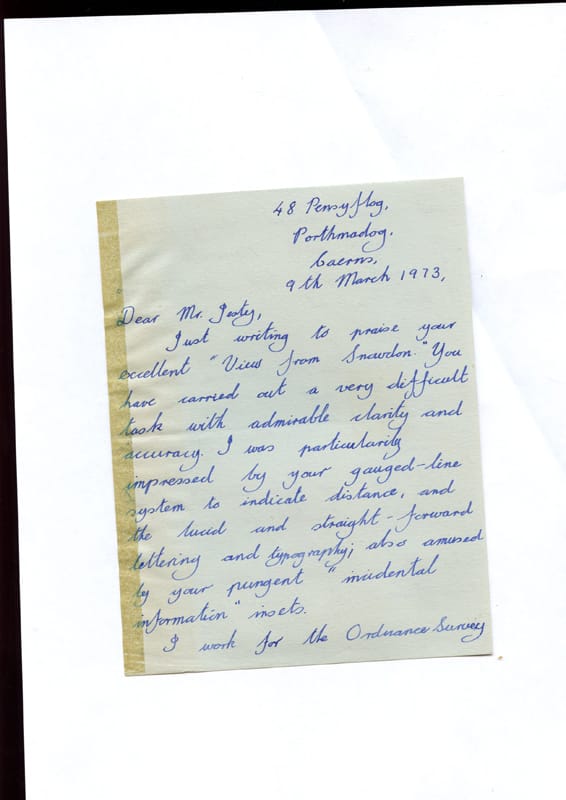 48 Pensyflog,
Porthmadog,
Caerns,
9th March 1973,
Dear Mr. Jesty,
Just writing to praise your
excellent "View from Snowdon." You
have carried out a very difficult
task with admirable clarity and
accuracy. I was particularly
impressed by your gauged-line
system to indicate distance, and
the lucid and straight-forward
lettering and typography; also amused
by your pungent "incidental
information" insets.
I work for the Ordnance Survey